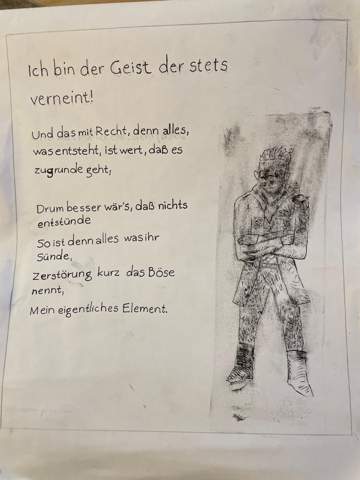 Ich bin der Geist der stets
verneint!
Und das mit Recht, denn alles,
was entsteht, ist wert, daß es
zugrunde geht,
Drum besser wär's, daß nichts
entstünde
So ist denn alles was ihr
Sünde,
Zerstörung kurz das Böse
nennt,
Mein eigentliches Element.